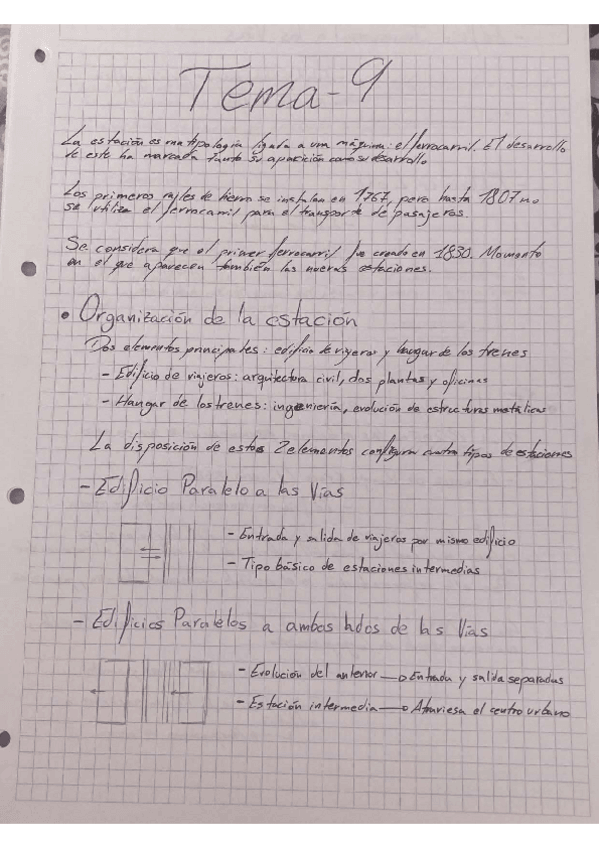 Tema-9
La estación es una tipología ligada a una máquina: el ferrocarril. El desarrollo
de este ha marcado tanto su aparición como su desarrollo
Los primeros raíles de hierro se instalan en 1767, pero hasta 1807 no
se utiliza el ferrocarril para el transporte de pasajeros.
Se considera que el primer ferrocarril fue creado en 1830. Momento
en el que aparecen también las nuevas estaciones.
• Organización de la estación
Dos elementos principales: edificio de viajeros y hangar de los trenes
- Edificio de viajeros: arquitectura civil, dos plantas y oficinas
- Hangar de los trenes: ingeniería, evolución de estructuras metálicas
La disposición de estos 2 elementos configura cuatro tipos de estaciones
- Edificio Paralelo a las Vías
- Entrada y salida de viajeros por mismo edificio
- Tipo básico de estaciones intermedias
- Edificios Paralelos a ambos lados de las Vías
- Evolución del anterior → Entrada y salida separadas
- Estación intermedia → Atraviesa el centro urbano